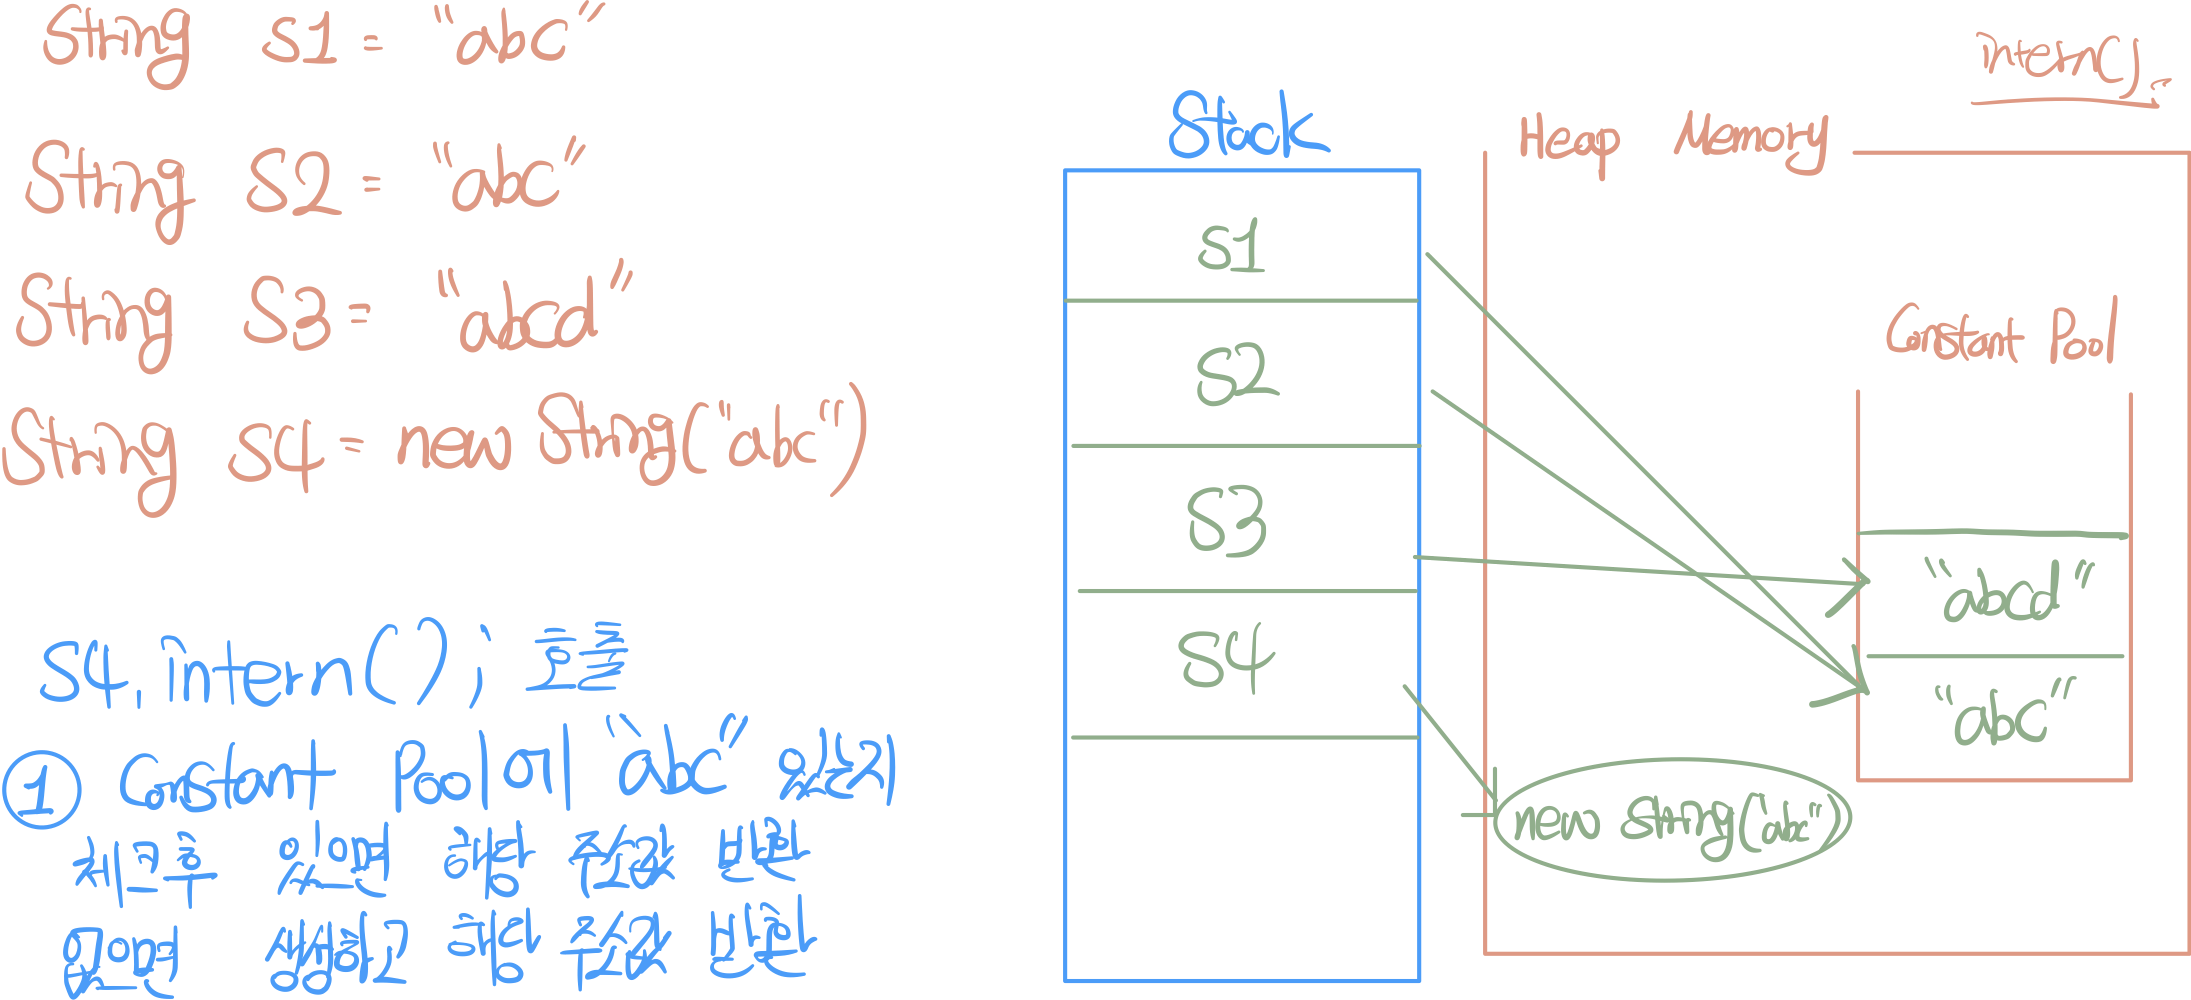 String S1 = "abc"
String S2 = "abc"
String S3 = "abcd"
String S4 = new String("abc")
S4.intern(); 호출
① Constant Pool에 "abc" 있는지
체크 후 있으면 해당 주소값 반환
없으면 생성하고 해당 주소값 반환
Stack
S1
S2
S3
S4
intern();
Heap Memory
Constant Pool
"abcd"
"abc"
new String("abc")